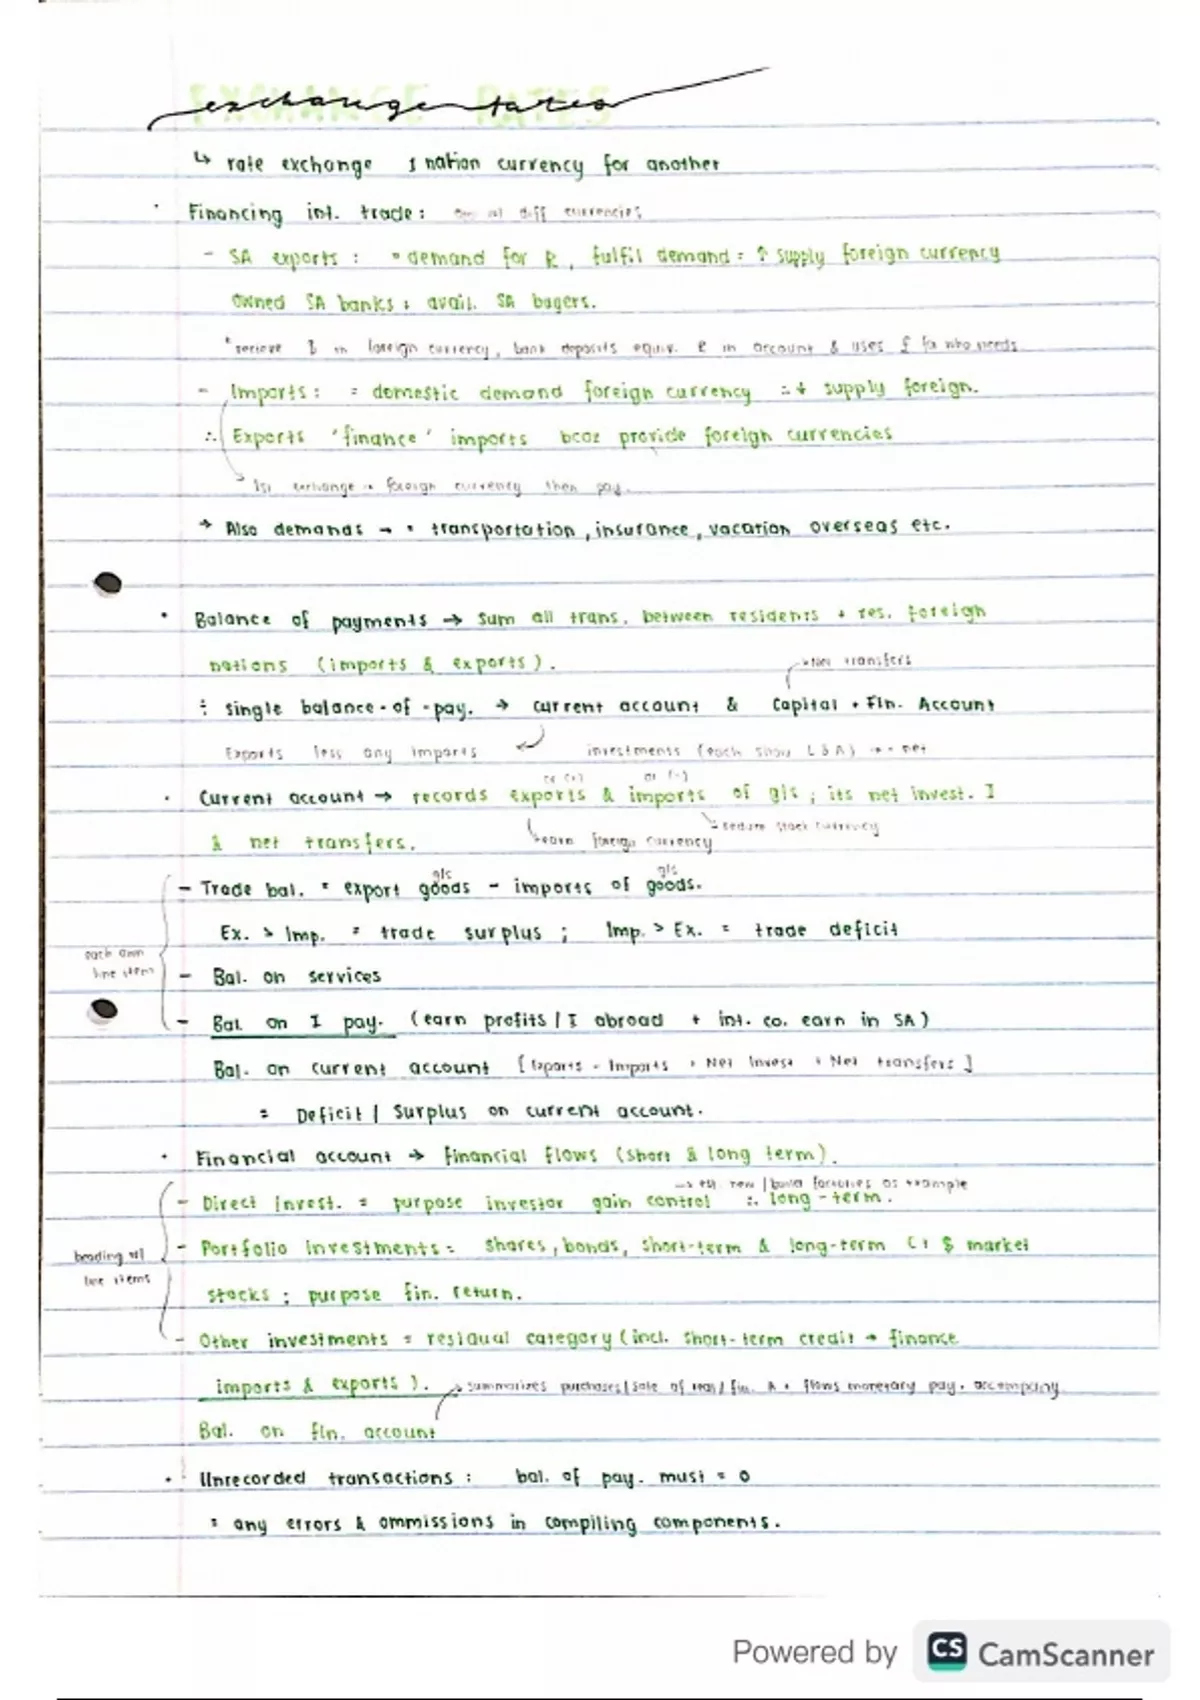 exchange rates
↳ rate exchange 1 nation currency for another
· Financing int. trade: diff currencies
- SA exports : = demand for R, fulfil demand = ↑ supply foreign currency
owned SA banks : avail. SA buyers.
* recieve in foreign currency, bank deposits equiv. R in account & uses £ for who needs
- Imports : = domestic demand foreign currency ∴ ↓ supply foreign.
∴ Exports 'finance' imports bcoz provide foreign currencies
1st exchange → foreign currency then pay.
→ Also demands → = transportation, insurance, vacation overseas etc.
· Balance of payments → Sum all trans. between residents + res. foreign
nations (imports & exports).
→ Net transfers
÷ single balance-of-pay. → current account & Capital + Fin. Account
Exports less any imports
investments (each show L & A) → net
(+) (-)
· Current account → records exports & imports of g/s ; its net invest. I
reduce stock currency
& net transfers.
earn foreign currency
g/s g/s
- Trade bal. = export goods - imports of goods.
Ex. > Imp. = trade surplus ; Imp. > Ex. = trade deficit
each own
line item
- Bal. on services
- Bal. on I pay. (earn profits / I abroad + int. co. earn in SA)
Bal. on current account [Exports - Imports + Net Invest + Net transfers]
= Deficit / Surplus on current account.
· Financial account → financial flows (short & long term).
new / build factories as example
- Direct invest. = purpose investor gain control ∴ long-term.
heading w/
line items
- Portfolio investments = shares, bonds, short-term & long-term $ market
stocks ; purpose fin. return.
- Other investments = residual category (incl. short-term credit → finance
imports & exports ).
→ summarizes purchases / sale of real / fin. A + flows monetary pay. accompany
Bal. on fin. account
· Unrecorded transactions : bal. of pay. must = 0
= any errors & ommissions in compiling components.
Powered by CS CamScanner